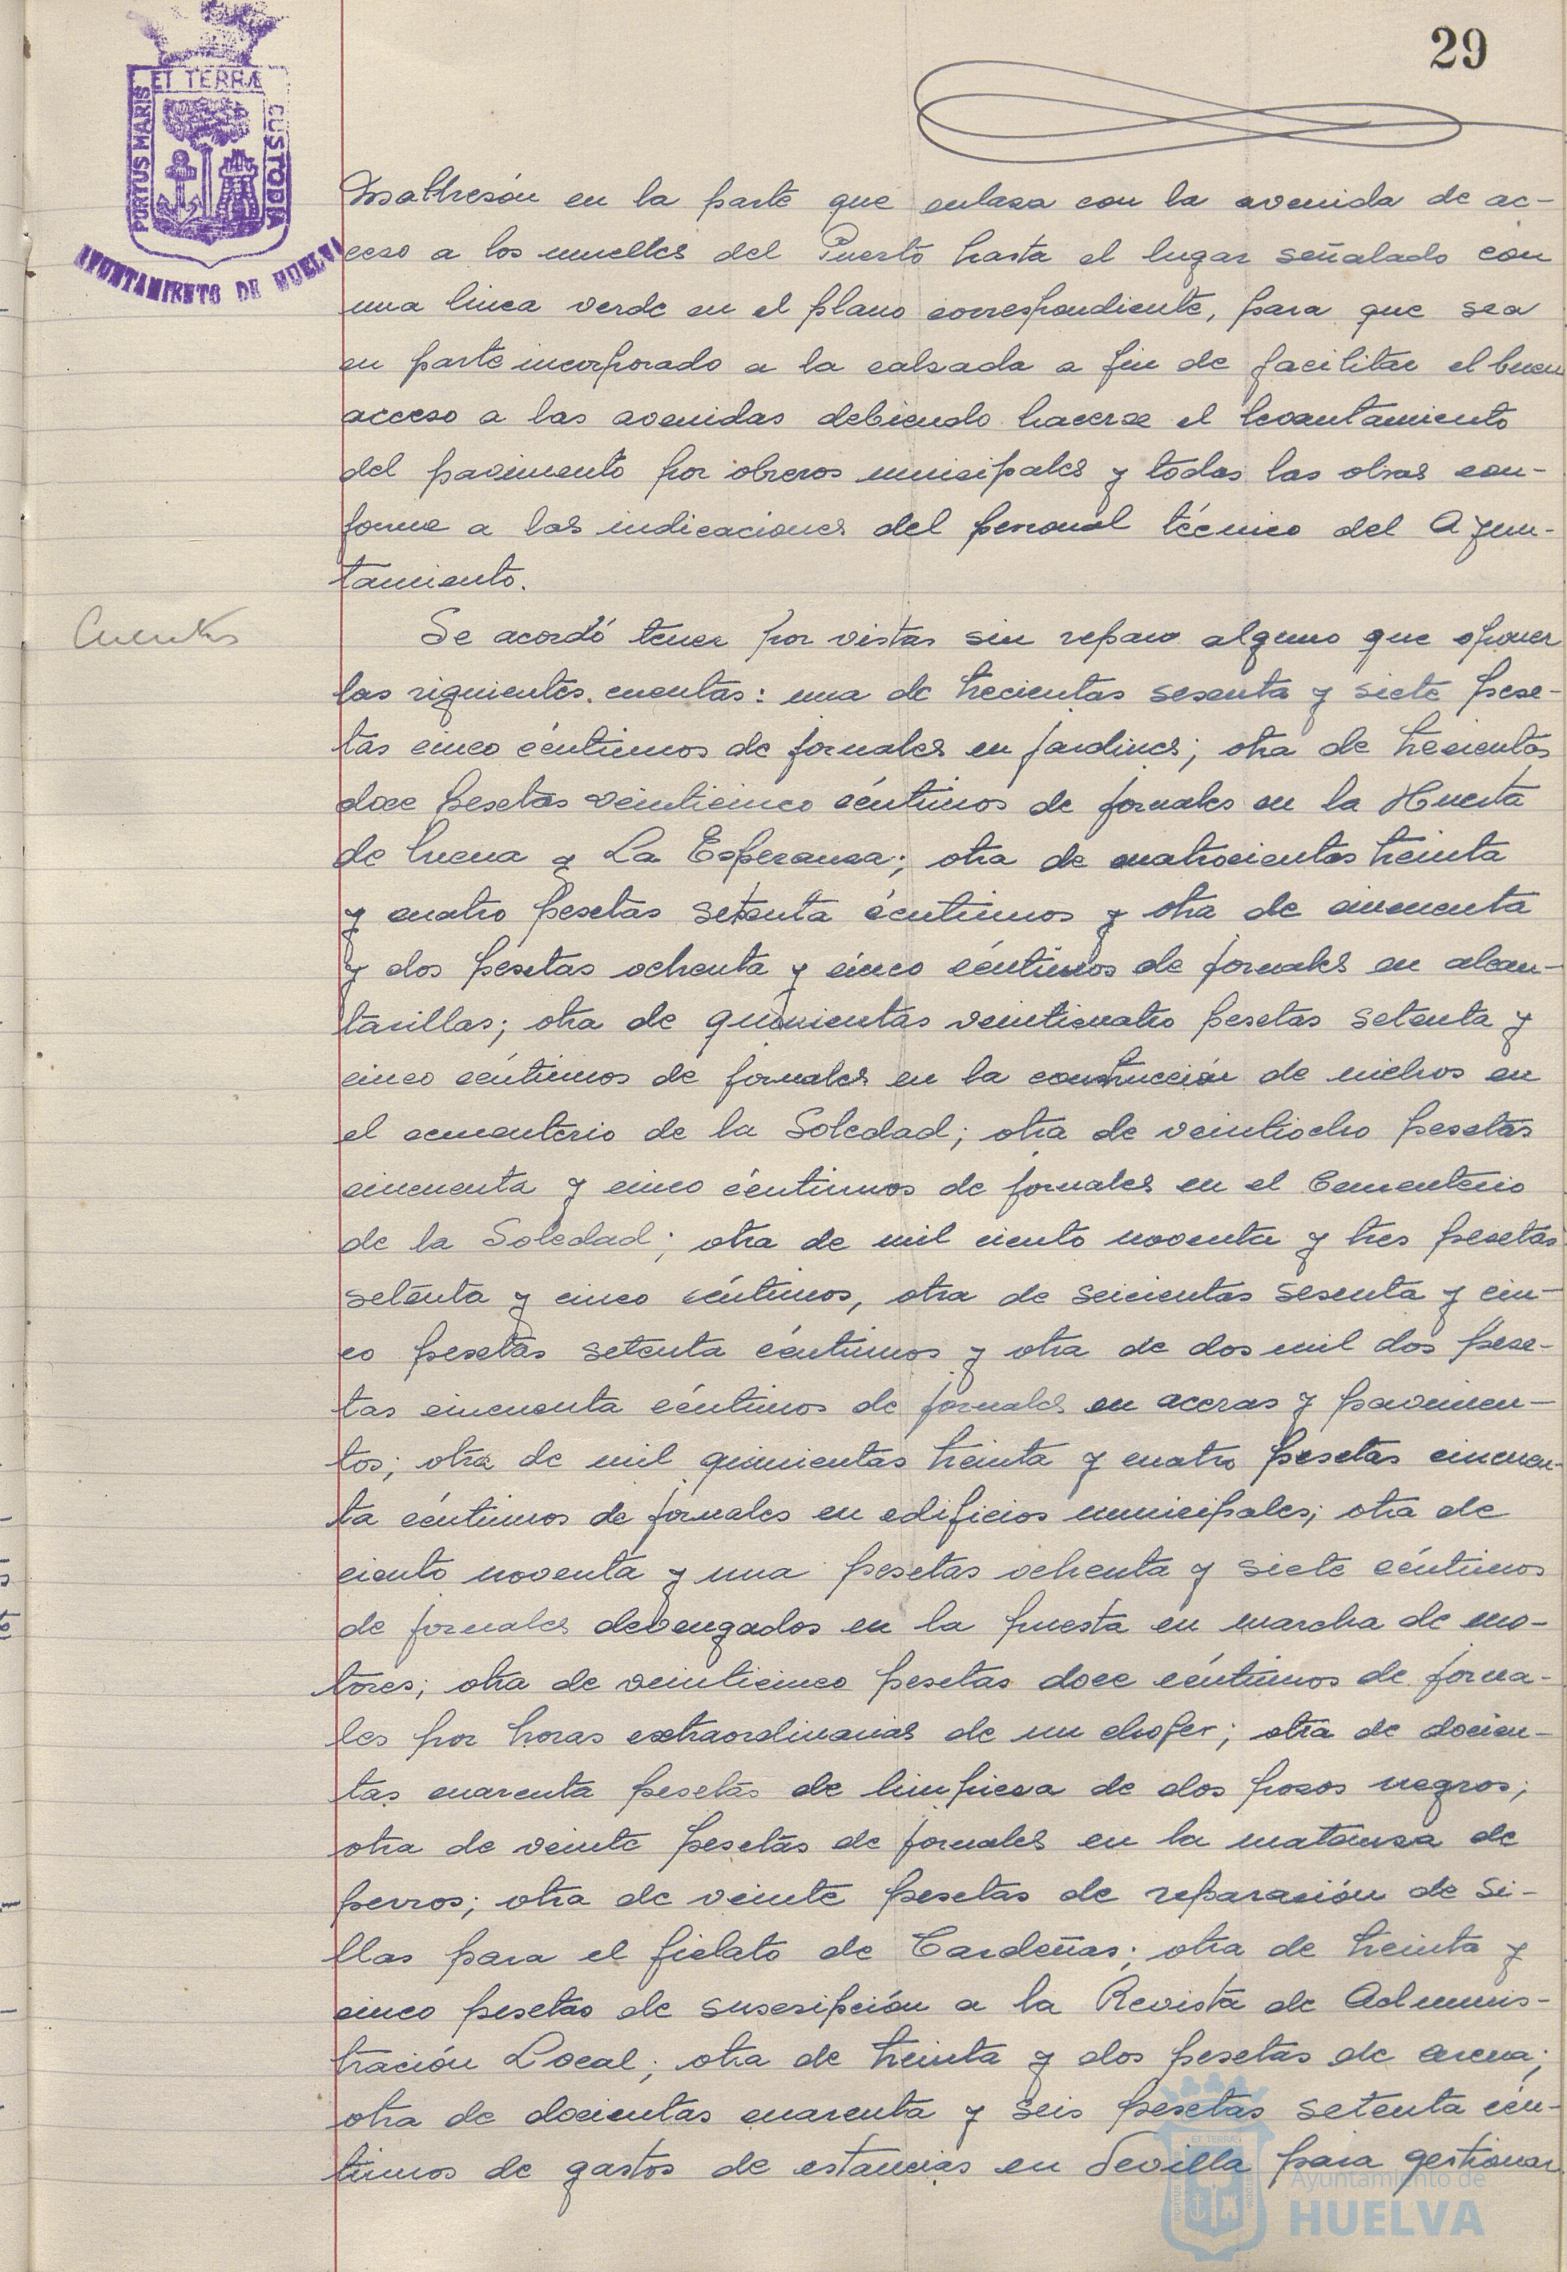 29
ET TERRÆ
PORTUS MARIS
CUSTODIA
AYUNTAMIENTO DE HUELVA
Mathesón en la parte que enlaza con la avenida de ac-
ceso a los muelles del Puerto hasta el lugar señalado con
una linea verde en el plano correspondiente, para que sea
en parte incorporado a la calzada a fin de facilitar el buen
acceso a las avenidas debiendo hacerse el levantamiento
del pavimento por obreros municipales y todas las obras con-
forme a las indicaciones del personal técnico del Ayun-
tamiento.
Cuentas
Se acordó tener por vistas sin reparo alguno que oponer
las siguientes cuentas: una de trecientas sesenta y siete pese-
tas cinco céntimos de jornales en jardines; otra de trecientas
doce pesetas veinticinco céntimos de jornales en la Huerta
de Mena y La Esperanza; otra de cuatrocientas treinta
y cuatro pesetas setenta céntimos y otra de cincuenta
y dos pesetas ochenta y cinco céntimos de jornales en alcan-
tarillas; otra de quinientas veinticuatro pesetas setenta y
cinco céntimos de jornales en la construcción de nichos en
el cementerio de la Soledad; otra de veintiocho pesetas
cincuenta y cinco céntimos de jornales en el Cementerio
de la Soledad; otra de mil ciento noventa y tres pesetas
setenta y cinco céntimos, otra de seicientas sesenta y cin-
co pesetas setenta céntimos y otra de dos mil dos pese-
tas cincuenta céntimos de jornales en aceras y pavimen-
tos; otra de mil quinientas treinta y cuatro pesetas cincuen-
ta céntimos de jornales en edificios municipales; otra de
ciento noventa y una pesetas ochenta y siete céntimos
de jornales devengados en la puesta en marcha de mo-
tores; otra de veinticinco pesetas doce céntimos de jorna-
les por horas extraordinarias de un chofer; otra de docien-
tas cuarenta pesetas de limpieza de dos pozos negros;
otra de veinte pesetas de jornales en la matanza de
perros; otra de veinte pesetas de reparación de si-
llas para el fielato de Cardeñas; otra de treinta y
cinco pesetas de suscripción a la Revista de Adminis-
tración Local; otra de treinta y dos pesetas de arena;
otra de docientas cuarenta y seis pesetas setenta cén-
timos de gastos de estancias en Sevilla para gestionar
Ayuntamiento de
HUELVA